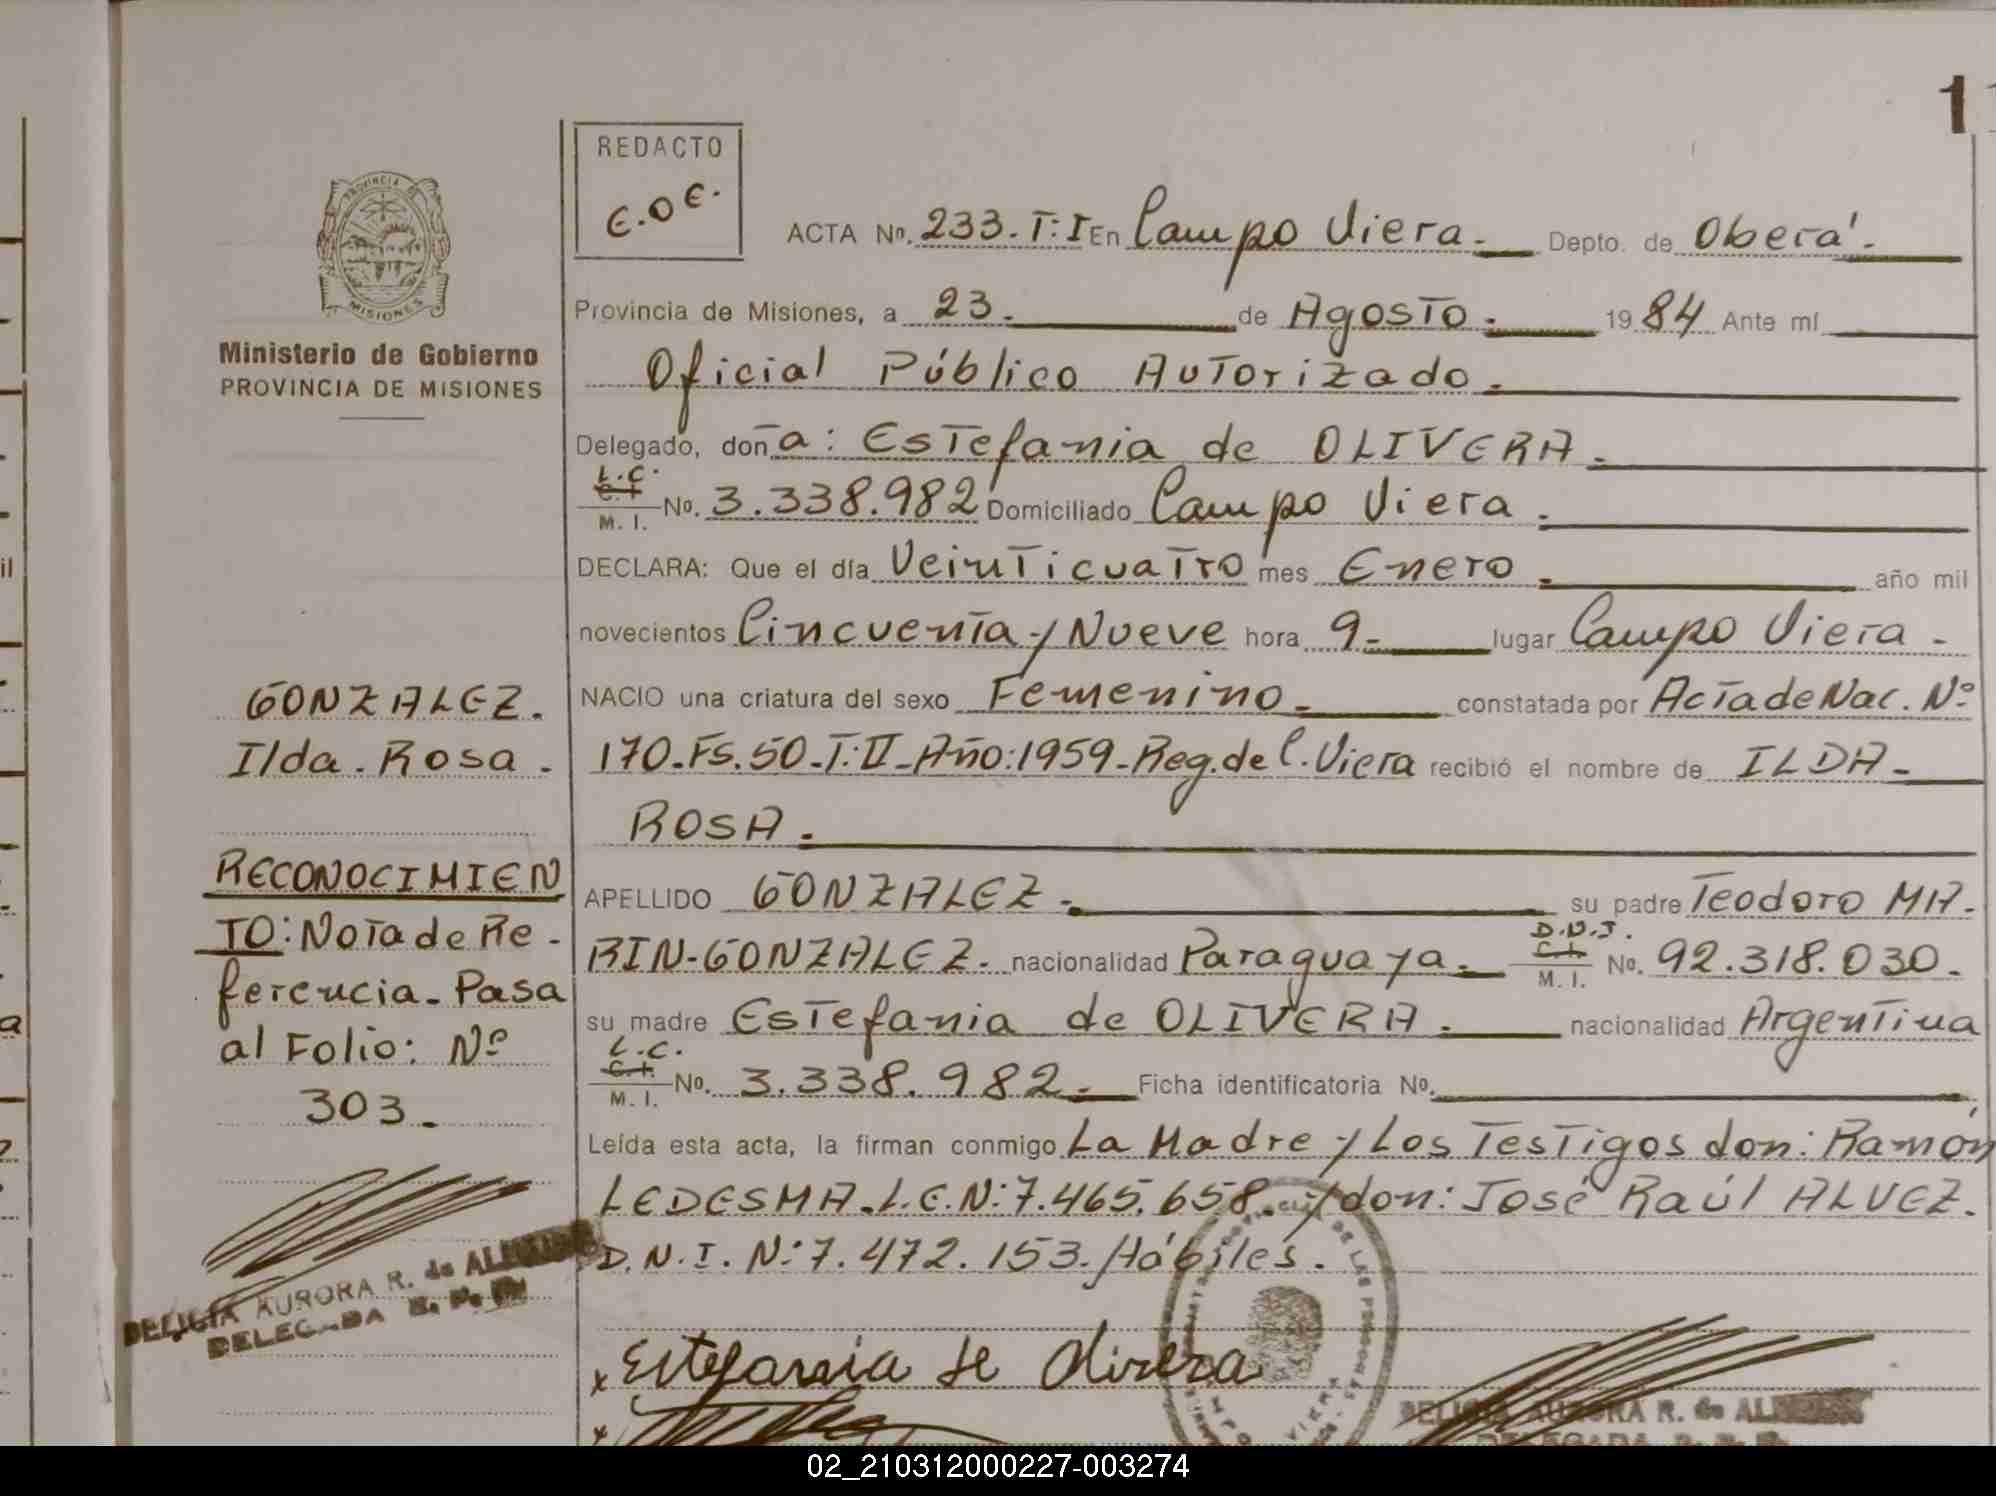 REDACTO
E.O.E.
PROVINCIA DE
MISIONES
Ministerio de Gobierno
PROVINCIA DE MISIONES
ACTA Nº. 233.T:I En Campo Viera.- Depto. de Oberá.
Provincia de Misiones, a 23. de Agosto. 1984 Ante mí
Oficial Público Autorizado.
Delegado, doña: Estefania de OLIVERA.
L.C.
C.I.
M. I. Nº. 3.338.982 Domiciliado Campo Viera.
DECLARA: Que el día Veinticuatro mes Enero. año mil
novecientos Cincuenta y Nueve hora 9.- lugar Campo Viera.
NACIO una criatura del sexo Femenino. constatada por Acta de Nac. Nº
170.Fs.50.T:II-Año:1959-Reg.de C.Viera recibió el nombre de ILDA-
ROSA.
APELLIDO GONZALEZ. su padre Teodoro MA-
D.N.I.
C.I.
RIN-GONZALEZ. nacionalidad Paraguaya. M. I. Nº. 92.318.030.
su madre Estefania de OLIVERA. nacionalidad Argentina
L.C.
C.I.
M. I. Nº. 3.338.982. Ficha identificatoria Nº.
Leída esta acta, la firman conmigo La Madre y Los Testigos don: Ramón
LEDESMA.L.E.N:7.465.658. y don: José Raúl ALVEZ.
D.N.I. N:7.472.153.Hábiles.
x Estefania de Olivera
x
DELICIA AURORA R. de
DELEGADA
GONZALEZ.
Ilda. Rosa.
RECONOCIMIEN
TO: Nota de Re-
ferencia. Pasa
al Folio: Nº
303.
DELICIA AURORA R. de
DELEGADA
il
a
02_210312000227-003274